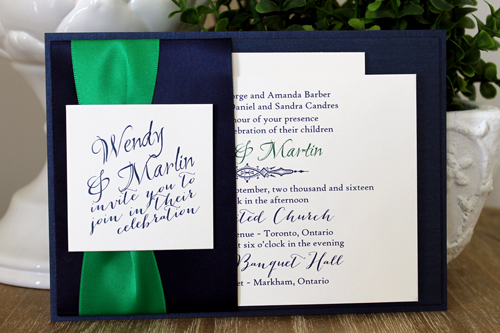 Wendy
& Martin
invite you to
join in their
celebration
and Amanda Barber
Daniel and Sandra Candres
hour of your presence
of their children
& Martin
two thousand and sixteen
in the afternoon
Church
Avenue - Toronto, Ontario
at six o'clock in the evening
Banquet Hall
- Markham, Ontario